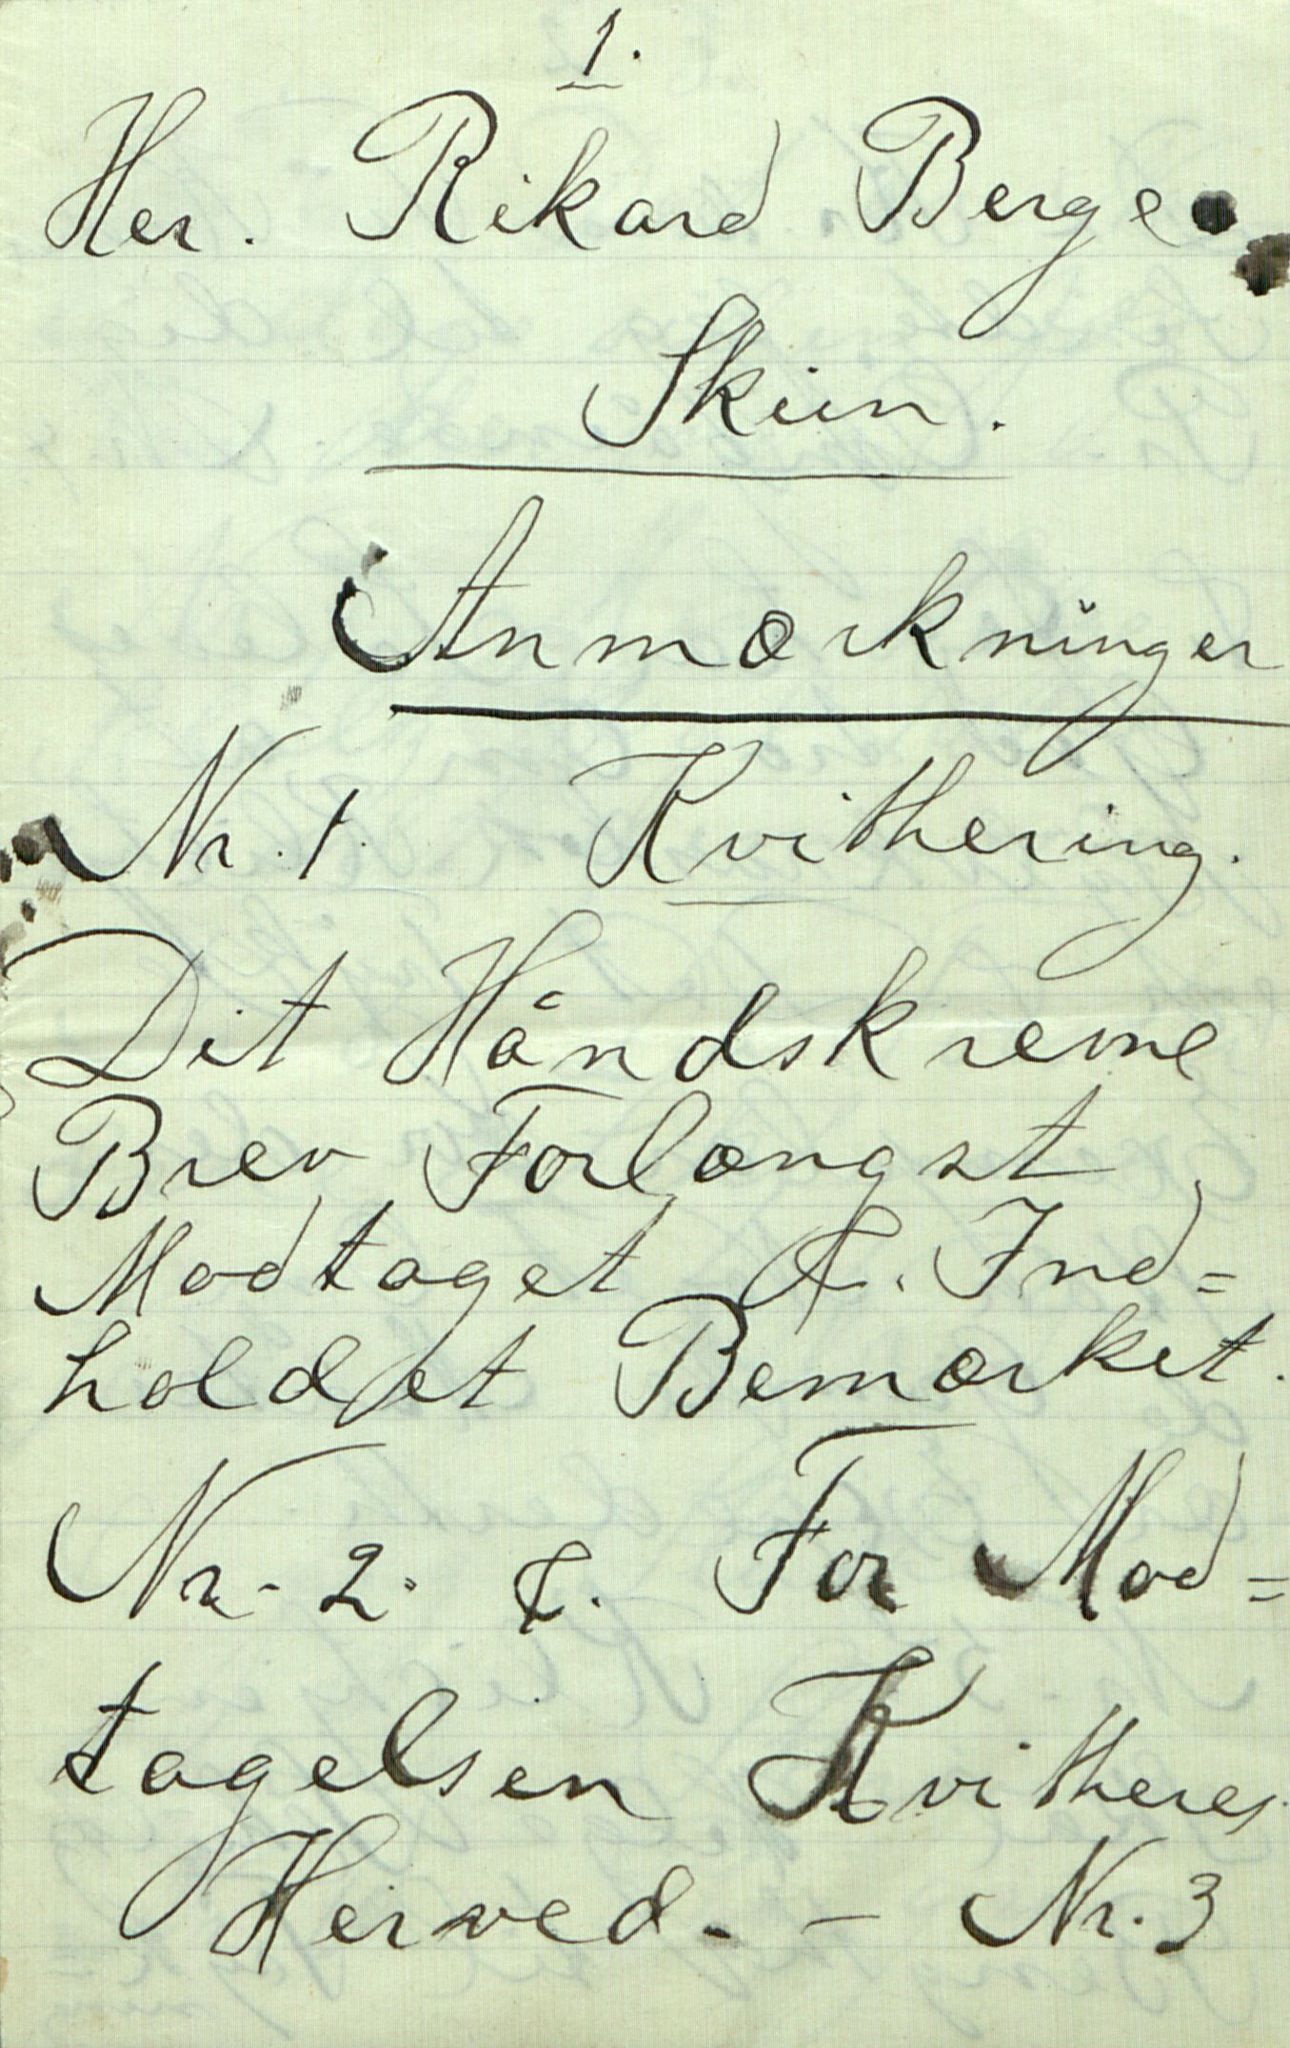 1.
Her. Rikard Berge
Skien.
Anmærkninger
Nr. 1. Kvithering.
Dit Håndskrevne
Brev Forlængst
Modtaget &. Ind=
holdet Bemærket.
Nr. 2. &. For Mod=
tagelsen Kvitheres
Herved. - Nr. 3